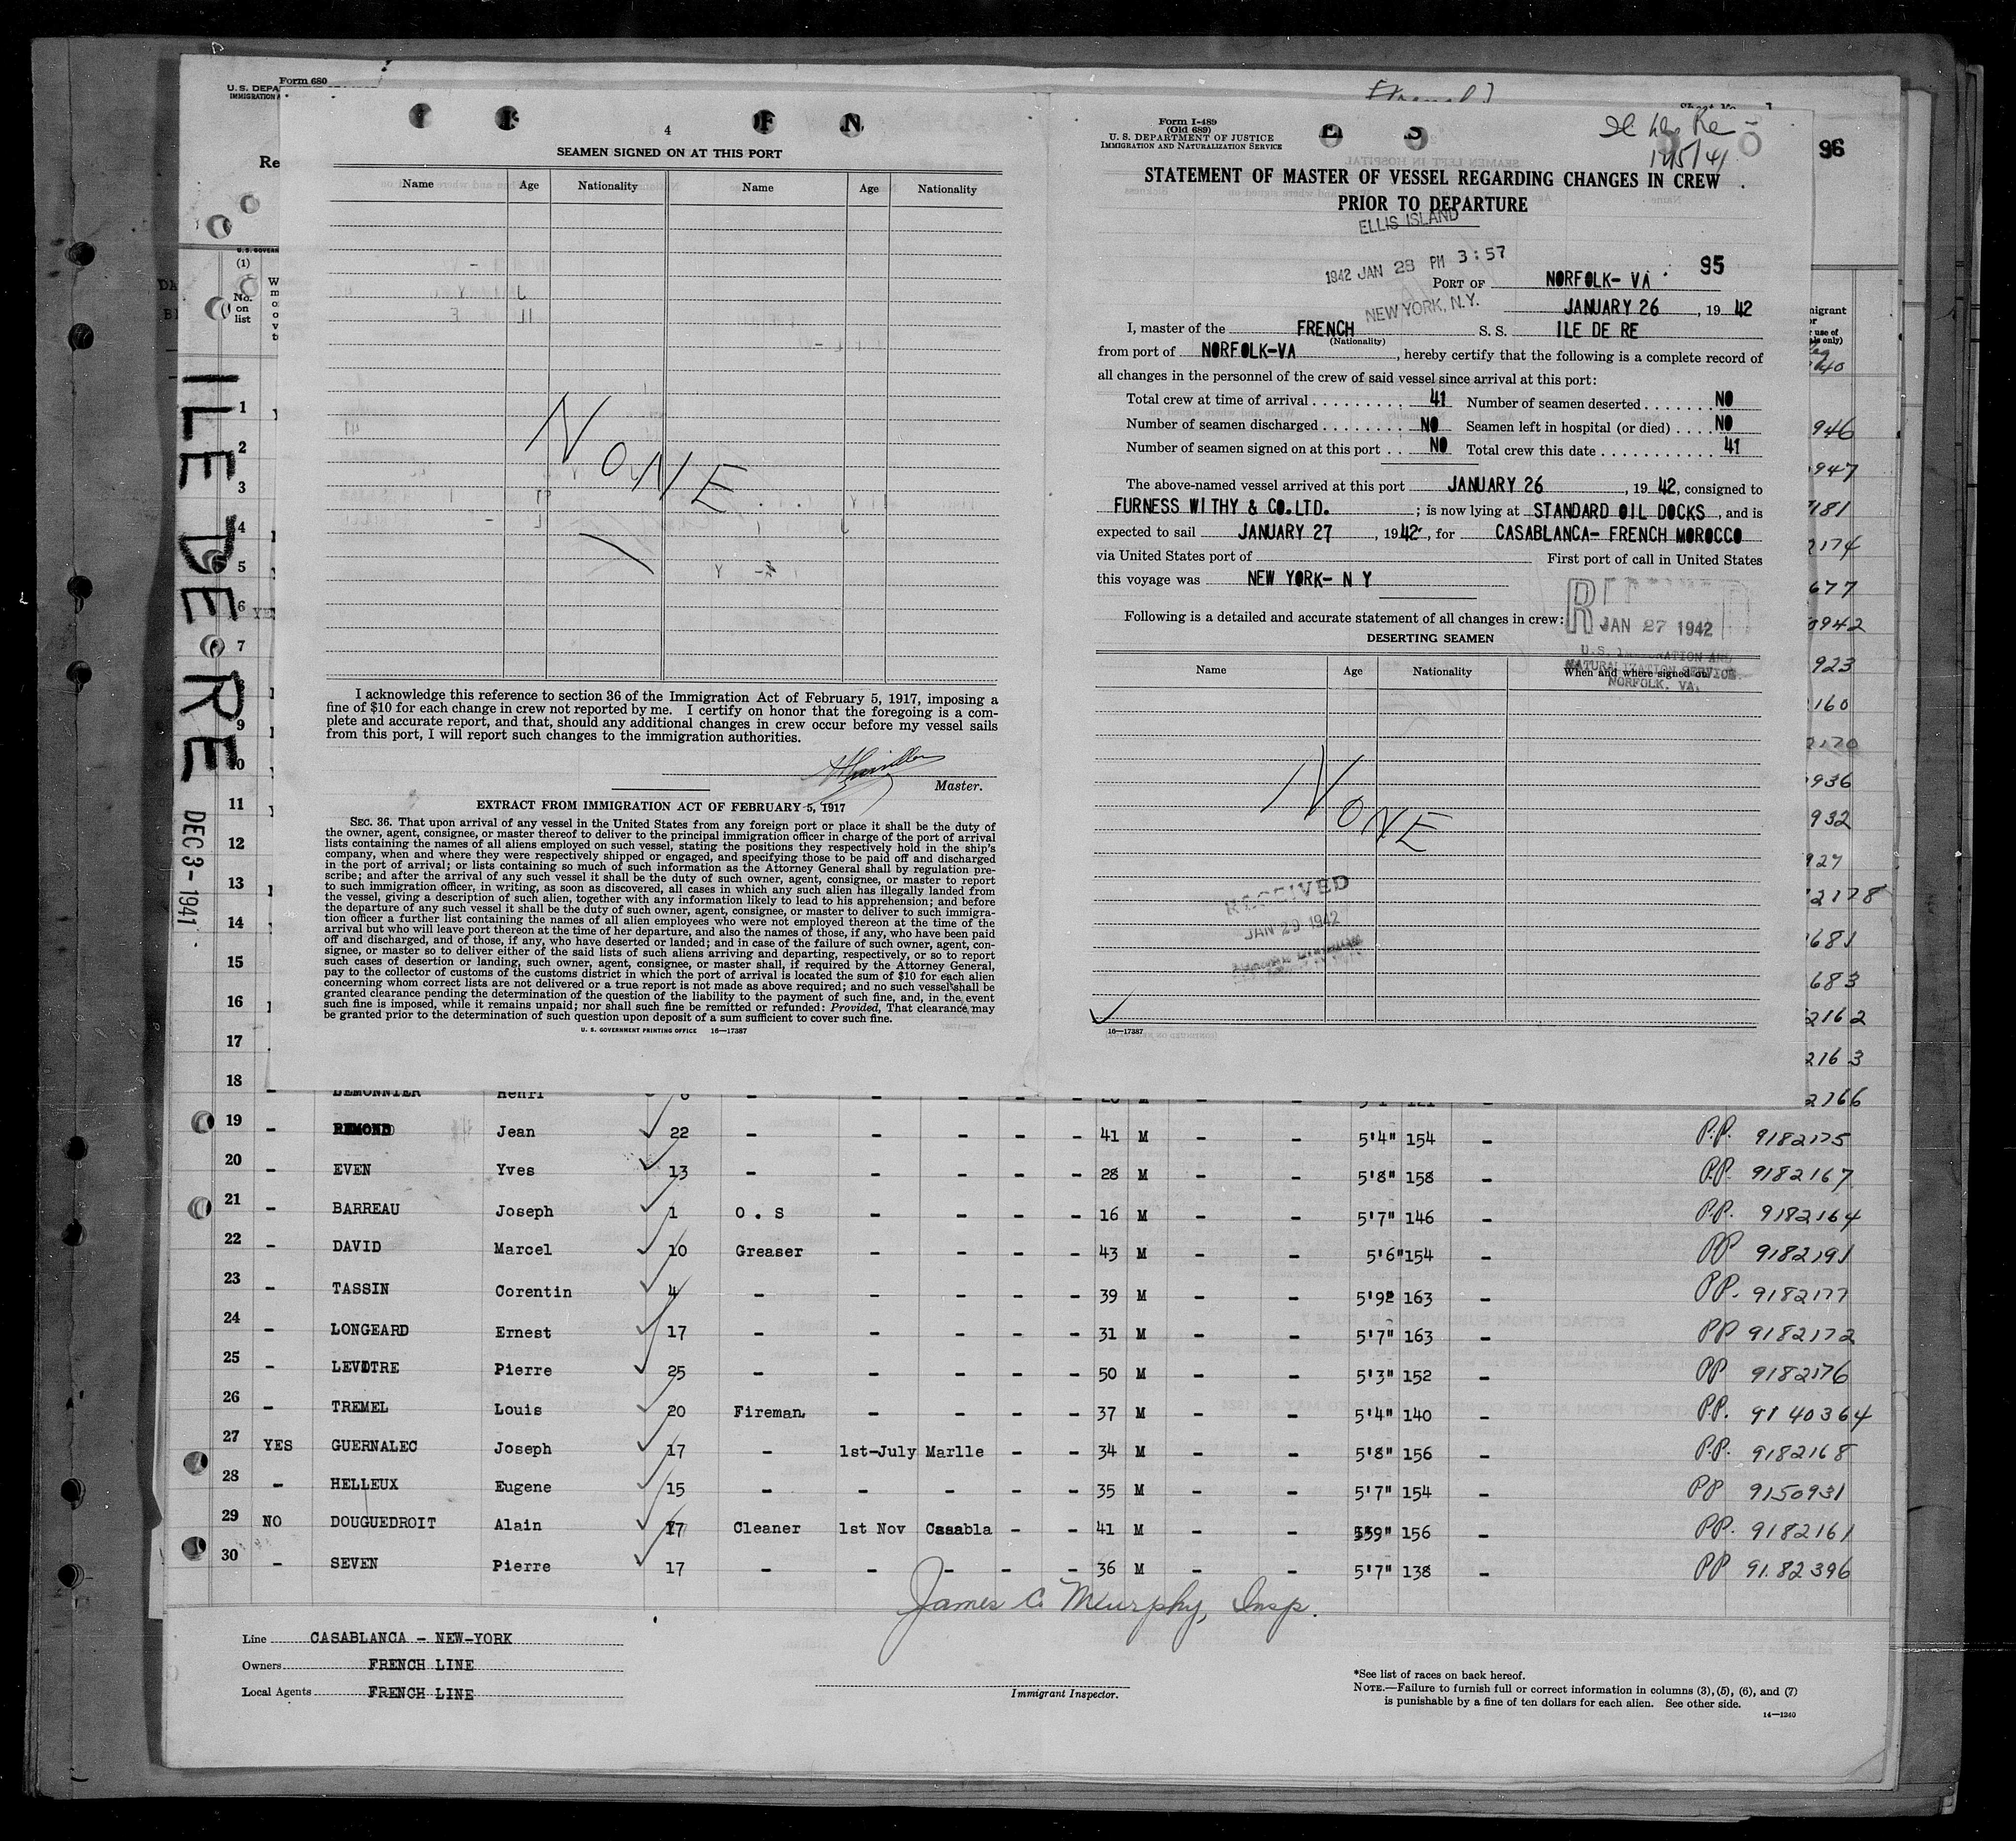 Form 680
U. S. DEPA
IMMIGRATION A
Re
U. S. GOVERN
(1)
No.
on
list
ILE DE RE
DEC 3 - 1941
4
SEAMEN SIGNED ON AT THIS PORT
Name Age Nationality Name Age Nationality
NONE
I acknowledge this reference to section 36 of the Immigration Act of February 5, 1917, imposing a
fine of $10 for each change in crew not reported by me. I certify on honor that the foregoing is a com-
plete and accurate report, and that, should any additional changes in crew occur before my vessel sails
from this port, I will report such changes to the immigration authorities.
Master.
EXTRACT FROM IMMIGRATION ACT OF FEBRUARY 5, 1917
SEC. 36. That upon arrival of any vessel in the United States from any foreign port or place it shall be the duty of
the owner, agent, consignee, or master thereof to deliver to the principal immigration officer in charge of the port of arrival
lists containing the names of all aliens employed on such vessel, stating the positions they respectively hold in the ship's
company, when and where they were respectively shipped or engaged, and specifying those to be paid off and discharged
in the port of arrival; or lists containing so much of such information as the Attorney General shall by regulation pre-
scribe; and after the arrival of any such vessel it shall be the duty of such owner, agent, consignee, or master to report
to such immigration officer, in writing, as soon as discovered, all cases in which any such alien has illegally landed from
the vessel, giving a description of such alien, together with any information likely to lead to his apprehension; and before
the departure of any such vessel it shall be the duty of such owner, agent, consignee, or master to deliver to such immigra-
tion officer a further list containing the names of all alien employees who were not employed thereon at the time of the
arrival but who will leave port thereon at the time of her departure, and also the names of those, if any, who have been paid
off and discharged, and of those, if any, who have deserted or landed; and in case of the failure of such owner, agent, con-
signee, or master so to deliver either of the said lists of such aliens arriving and departing, respectively, or so to report
such cases of desertion or landing, such owner, agent, consignee, or master shall, if required by the Attorney General,
pay to the collector of customs of the customs district in which the port of arrival is located the sum of $10 for each alien
concerning whom correct lists are not delivered or a true report is not made as above required; and no such vessel shall be
granted clearance pending the determination of the question of the liability to the payment of such fine, and, in the event
such fine is imposed, while it remains unpaid; nor shall such fine be remitted or refunded: Provided, That clearance may
be granted prior to the determination of such question upon deposit of a sum sufficient to cover such fine.
U. S. GOVERNMENT PRINTING OFFICE 16—17387
Form I-489
(Old 689)
U. S. DEPARTMENT OF JUSTICE
IMMIGRATION AND NATURALIZATION SERVICE
96
STATEMENT OF MASTER OF VESSEL REGARDING CHANGES IN CREW
PRIOR TO DEPARTURE
ELLIS ISLAND
1942 JAN 28 PM 3:57
NEW YORK, N.Y.
95
PORT OF NORFOLK- VA
JANUARY 26, 1942
I, master of the FRENCH S. S. ILE DE RE
(Nationality)
from port of NORFOLK-VA, hereby certify that the following is a complete record of
all changes in the personnel of the crew of said vessel since arrival at this port:
Total crew at time of arrival . . . . . . . . . . 41 Number of seamen deserted . . . . . . . NO
Number of seamen discharged . . . . . . . . NO Seamen left in hospital (or died) . . . . NO
Number of seamen signed on at this port . . NO Total crew this date . . . . . . . . . . . 41
The above-named vessel arrived at this port JANUARY 26, 1942, consigned to
FURNESS WITHY & CO.LTD. ; is now lying at STANDARD OIL DOCKS, and is
expected to sail JANUARY 27, 1942, for CASABLANCA- FRENCH MOROCCO
via United States port of First port of call in United States
this voyage was NEW YORK- N Y
Following is a detailed and accurate statement of all changes in crew:
JAN 27 1942
NATURALIZATION SERVICE
NORFOLK, VA.
DESERTING SEAMEN
Name Age Nationality When and where signed on
NONE
RECEIVED
JAN 29 1942
16—17387
1
2
3
4
5
6
7
9
10
11
12
13
14
15
16
17
18 DEMONNIER Henri
19 - REMOND Jean 22 - - - - - 41 M - - 5'4" 154 - P.P. 9182175
20 - EVEN Yves 13 - - - - - 28 M - - 5'8" 158 - P.P. 9182167
21 - BARREAU Joseph 1 O . S - - - - 16 M - - 5'7" 146 - P.P. 9182164
22 - DAVID Marcel 10 Greaser - - - - 43 M - - 5'6" 154 - PP 9182191
23 - TASSIN Corentin 4 - - - - - 39 M - - 5'92 163 - PP. 9182177
24 - LONGEARD Ernest 17 - - - - - 31 M - - 5'7" 163 - PP 9182172
25 - LEVITRE Pierre 25 - - - - - 50 M - - 5'3" 152 - PP 9182176
26 - TREMEL Louis 20 Fireman - - - - 37 M - - 5'4" 140 - P.P. 9140364
27 YES GUERNALEC Joseph 17 - 1st-July Marlle - - 34 M - - 5'8" 156 - P.P. 9182168
28 - HELLEUX Eugene 15 - - - - - 35 M - - 5'7" 154 - PP 9150931
29 NO DOUGUEDROIT Alain 17 Cleaner 1st Nov Casabla - - 41 M - - 5'9" 156 - PP. 9182161
30 - SEVEN Pierre 17 - - - - - 36 M - - 5'7" 138 - PP 9182396
James C. Murphy, Insp.
Line CASABLANCA - NEW-YORK
Owners FRENCH LINE
Local Agents FRENCH LINE
Immigrant Inspector.
*See list of races on back hereof.
NOTE.—Failure to furnish full or correct information in columns (3), (5), (6), and (7)
is punishable by a fine of ten dollars for each alien. See other side.
14—1240